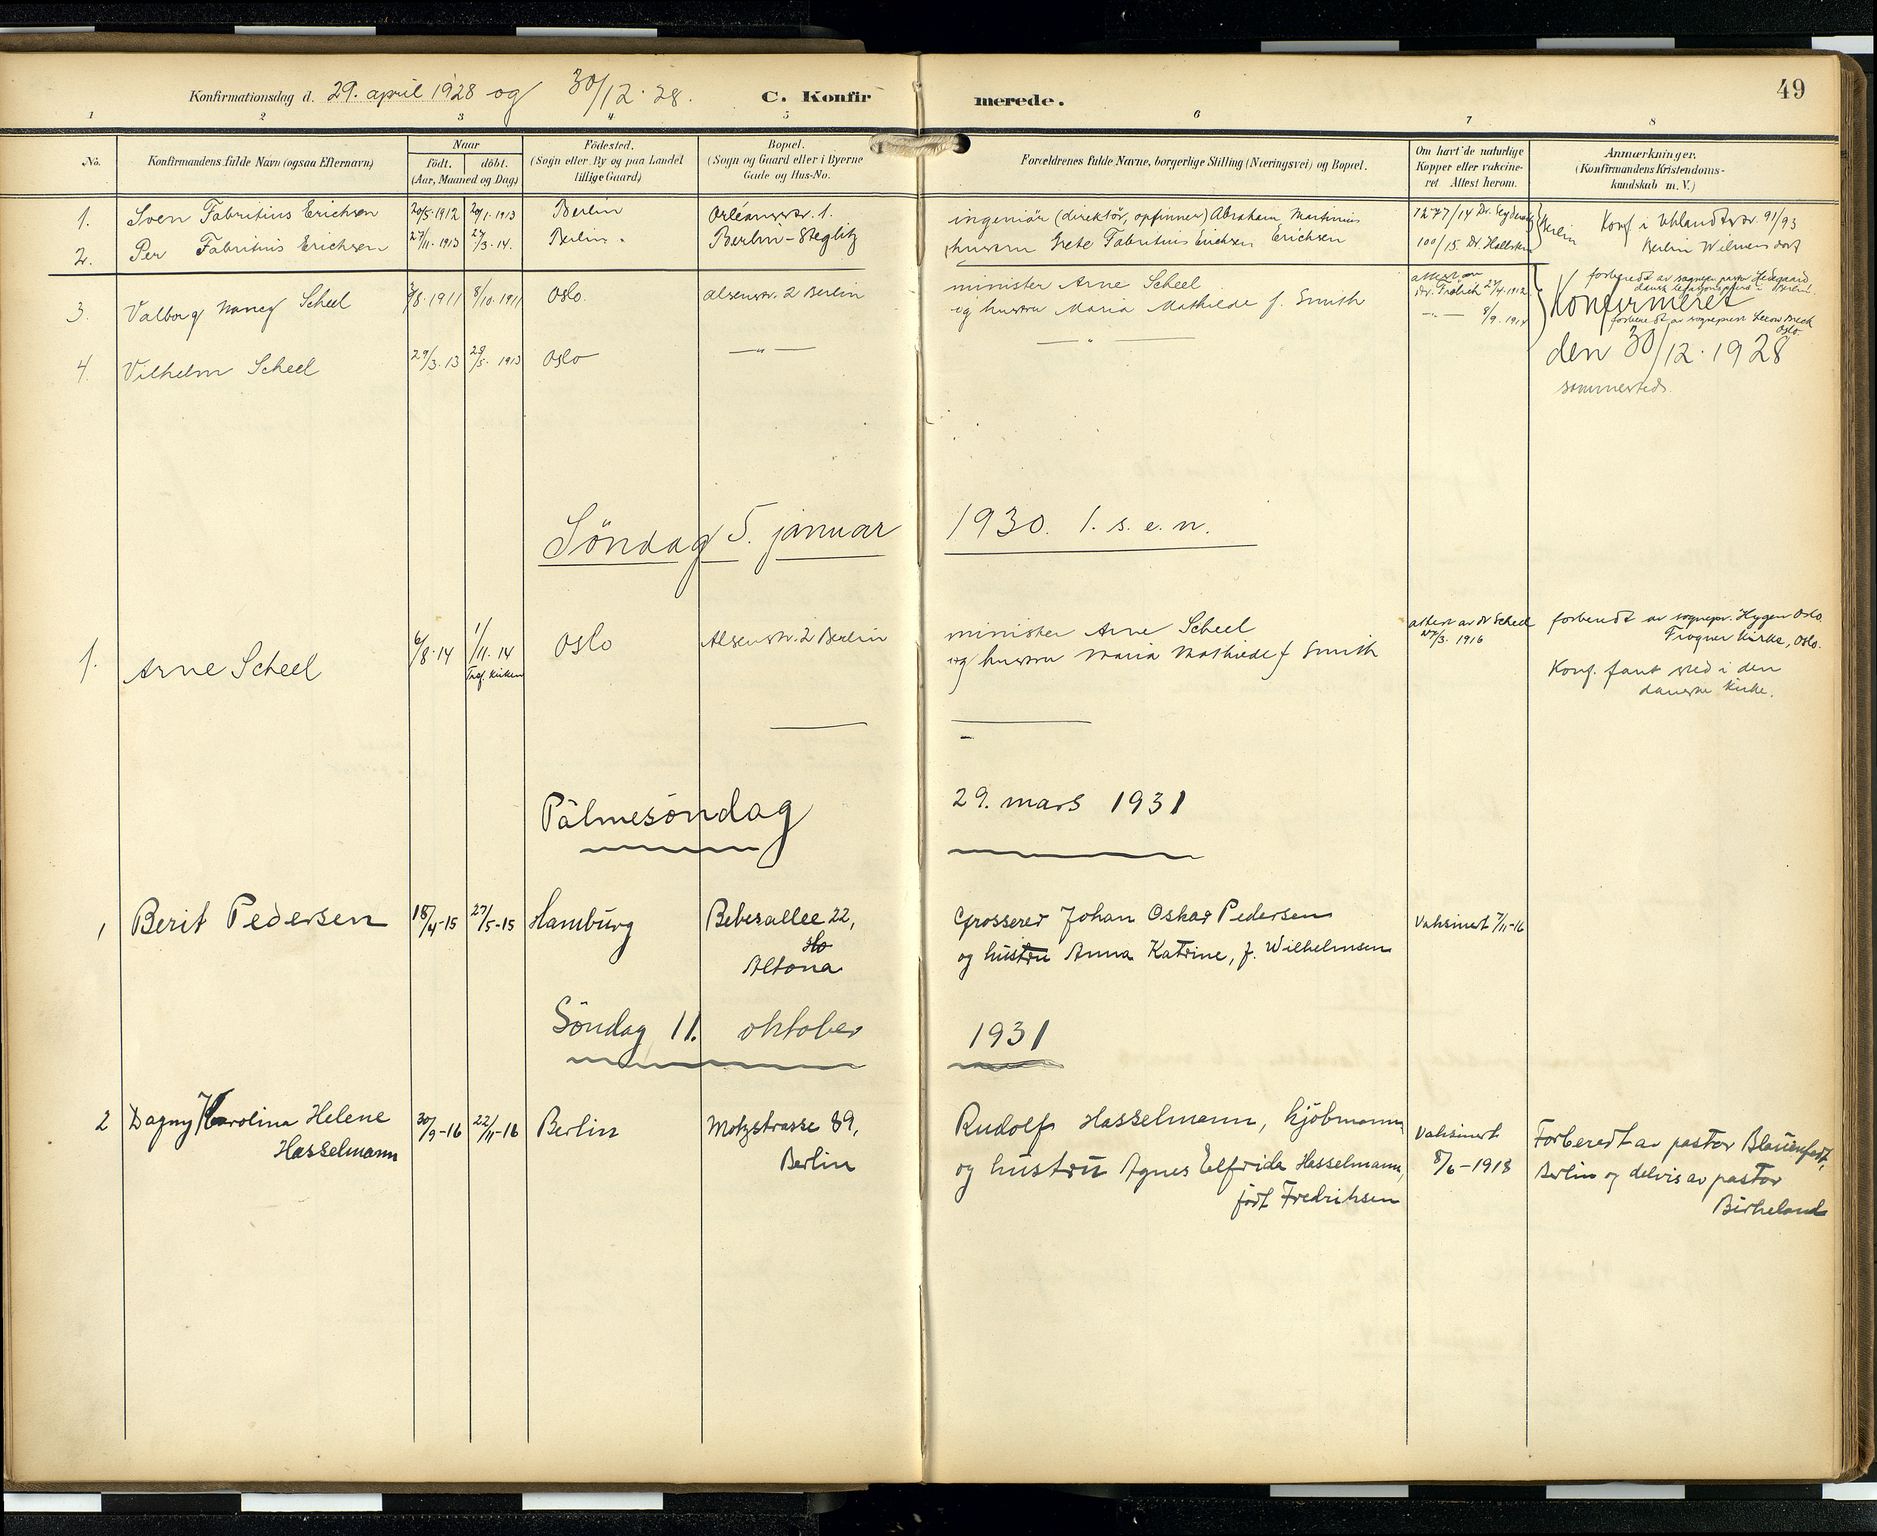 49
Konfirmationsdag d. 29. april 1928 og 30/12.28. C. Konfirmerede.
1 2 3 4 5 6 7 8
No.
Konfirmandens fulde Navn (ogsaa Efternavn)
Naar
født. døbt.
(Aar, Maaned og Dag)
Fødested.
(Sogn eller By og paa Landet
tillige Gaard)
Bopæl.
(Sogn og Gaard eller i Byerne
Gade og Hus-No.
Forældrenes fulde Navne, borgerlige Stilling (Næringsvei) og Bopæl.
Om havt de naturlige
Kopper eller vakcine-
ret Attest herom.
Anmærkninger.
(Konfirmandens Kristendoms-
kundskab m. V.)
1. Sven Fabritius Erichsen 20/5.1912 20/1.1913 Berlin Orléansstr. 1. ingeniør (direktör, opfinner) Abraham Martinius 1277/14 Konf i Uhlandtstr. 91/93
2. Per Fabritius Erichsen 27/11.1913 27/3.14. Berlin. Berlin-Steglitz hustru Grete Fabritius Erichsen Erichsen 100/15 Dr. Berlin Berlin Wilmersdorf
3. Valborg Nancy Scheel /8.1911 8/10.1911 Oslo. Alsenstr. 2 Berlin minister Arne Scheel
og hustru Maria Mathilde f. Smith
attest av
Dr. Frölich 24/4.1912
-"- 8/9.1914
forberedt av sogneprest Hedegaard
dansk legationsprest i Berlin.
Konfirmeret
forberedt av sogneprest Breck
Oslo
4. Vilhelm Scheel 29/3.13 29/5.1913 Oslo -"- -"- den 30/12.1928
sammesteds.
Söndag 5. januar 1930. 1. s. e. n.
1. Arne Scheel 6/8.14 1/11.14 Oslo Alsenstr. 2 Berlin minister Arne Scheel
og hustru Maria Mathilde f Smith
attest av dr Scheel
27/3.1916
forberedt av sognepr. Hygen Oslo.
Frogner Kirke, Oslo.
Konf. fant sted i den
danske kirke.
Pålmesöndag 29. mars 1931
1 Berit Pedersen 18/4-15 27/5-15 Hamburg Bebesallee 22,
Altona
Grosserer Johan Oskar Pedersen
og hustru Anna Katrine, f. Wilhelmsen
Vaksinert 7/11-16
Söndag 11. oktober 1931
2 Dagny Karolina Helene
Hasselmann
30/9-16 22/11-16 Berlin Motzstrasse 89,
Berlin
Rudolf Hasselmann, kjöbmann
og hustru Agnes Elfride Hasselmann,
født Fredriksen
Vaksinert
8/6-1918
Forberedt av pastor Blauenfeldt,
Berlin og delvis av pastor
Birkeland